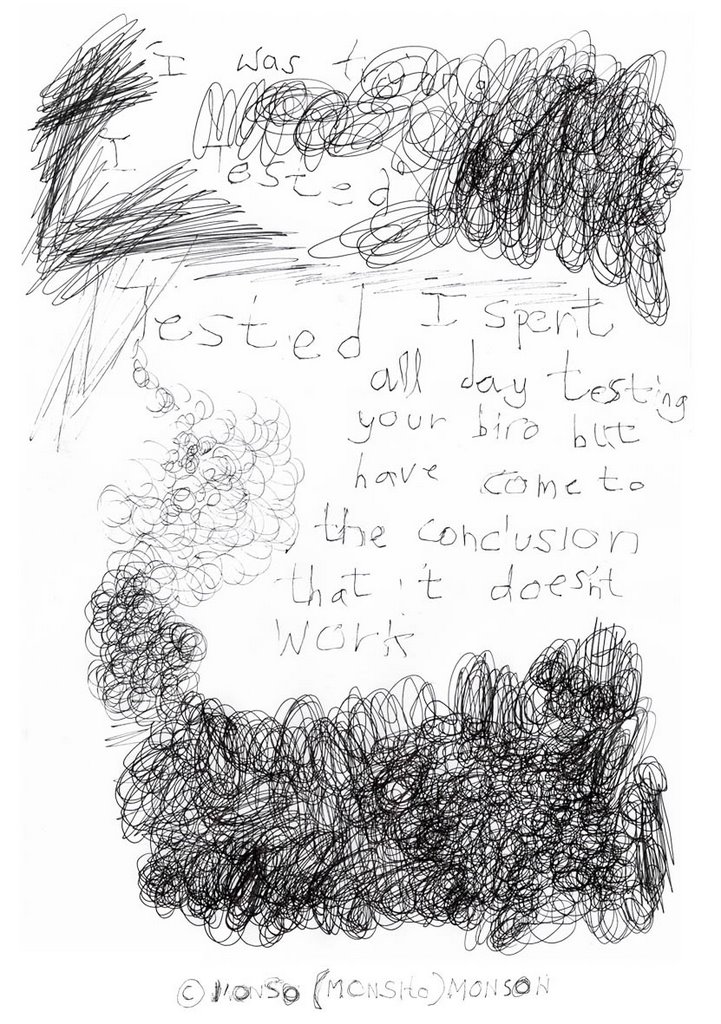 I was trying
I Tested
Tested I spent
all day testing
your biro but
have come to
the conclusion
that it doesn't
work
© MONSO (MONSHo) MONSON